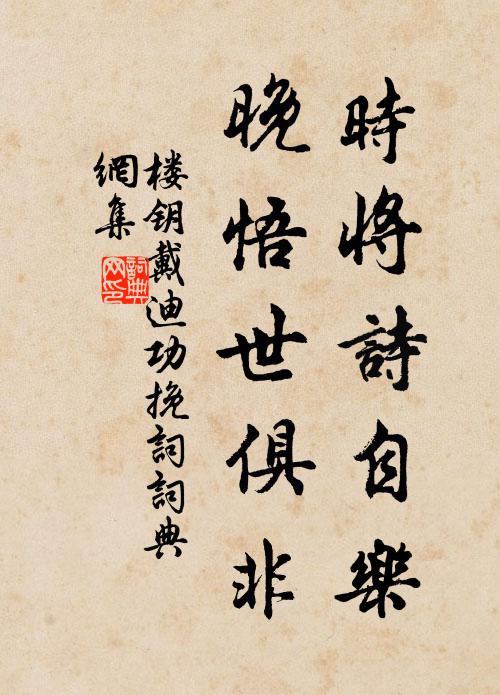 時將詩自樂
晚悟世俱非
楼钥戴迪功挽詞詞典
網集
詞典
网印